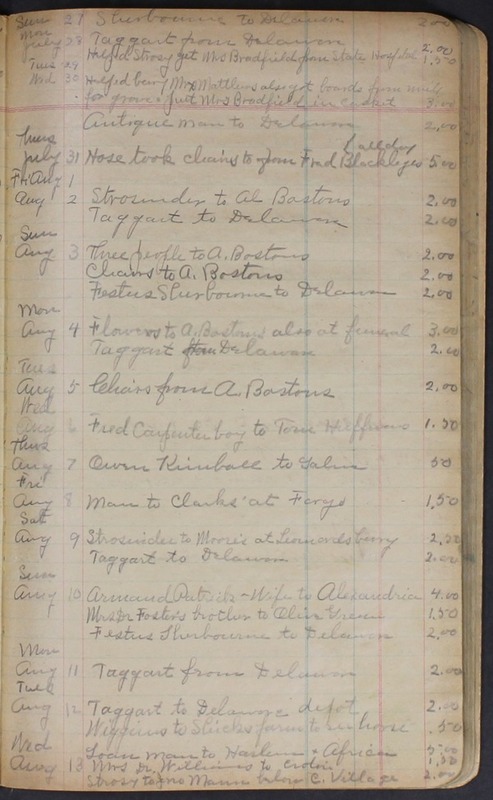 Sun 27 Sherbourne to Delaware 2.00
Mon July 28 Taggart from Delaware 2.00
Tues 29 Helped Strosy get Mrs Bradfield from State Hospital 1.50
Wed 30 Helped bury Mrs Matthews also got boards from mill
for grave & put Mrs Bradfield in casket 3.00
Antique man to Delaware 2.00
Thurs
July 31 Hose took chairs to & from Fred Blackleges 5.00
Fri Aug 1
Aug 2 Strosnider to Al Bostons 2.00
Taggart to Delaware 2.00
Sun
Aug 3 Three people to A. Bostons 2.00
Chairs to A. Bostons 2.00
Festus Sherbourne to Delaware 2.00
Mon
Aug 4 Flowers to A. Bostons also at funeral 3.00
Taggart from Delaware 2.00
Tues
Aug 5 Chairs from A. Bostons 2.00
Wed
Aug 6 Fred Carpenter boy to Tom Heffners 1.50
Thurs
Aug 7 Owen Kimball to Galena 50
Fri
Aug 8 Man to Clarks at Fargo 1.50
Sat
Aug 9 Strosnider to Moores at Leonardsburg
Taggart to Delaware 2.00
Sun
Aug 10 Armand Patrick & Wife to Alexandria 4.00
Mrs Dr Fosters brother to Olive Green 1.50
Festus Sherbourne to Delaware 2.00
Mon
Aug 11 Taggart from Delaware 2.00
Tues
Aug 12 Taggart to Delaware depot 2.00
Wiggins to farm to horse .50
Loan man to Harlem & Africa
Wed
Aug 13 Mrs Dr Williams to 1.50
Strosy to Mann below C. Village 2.00